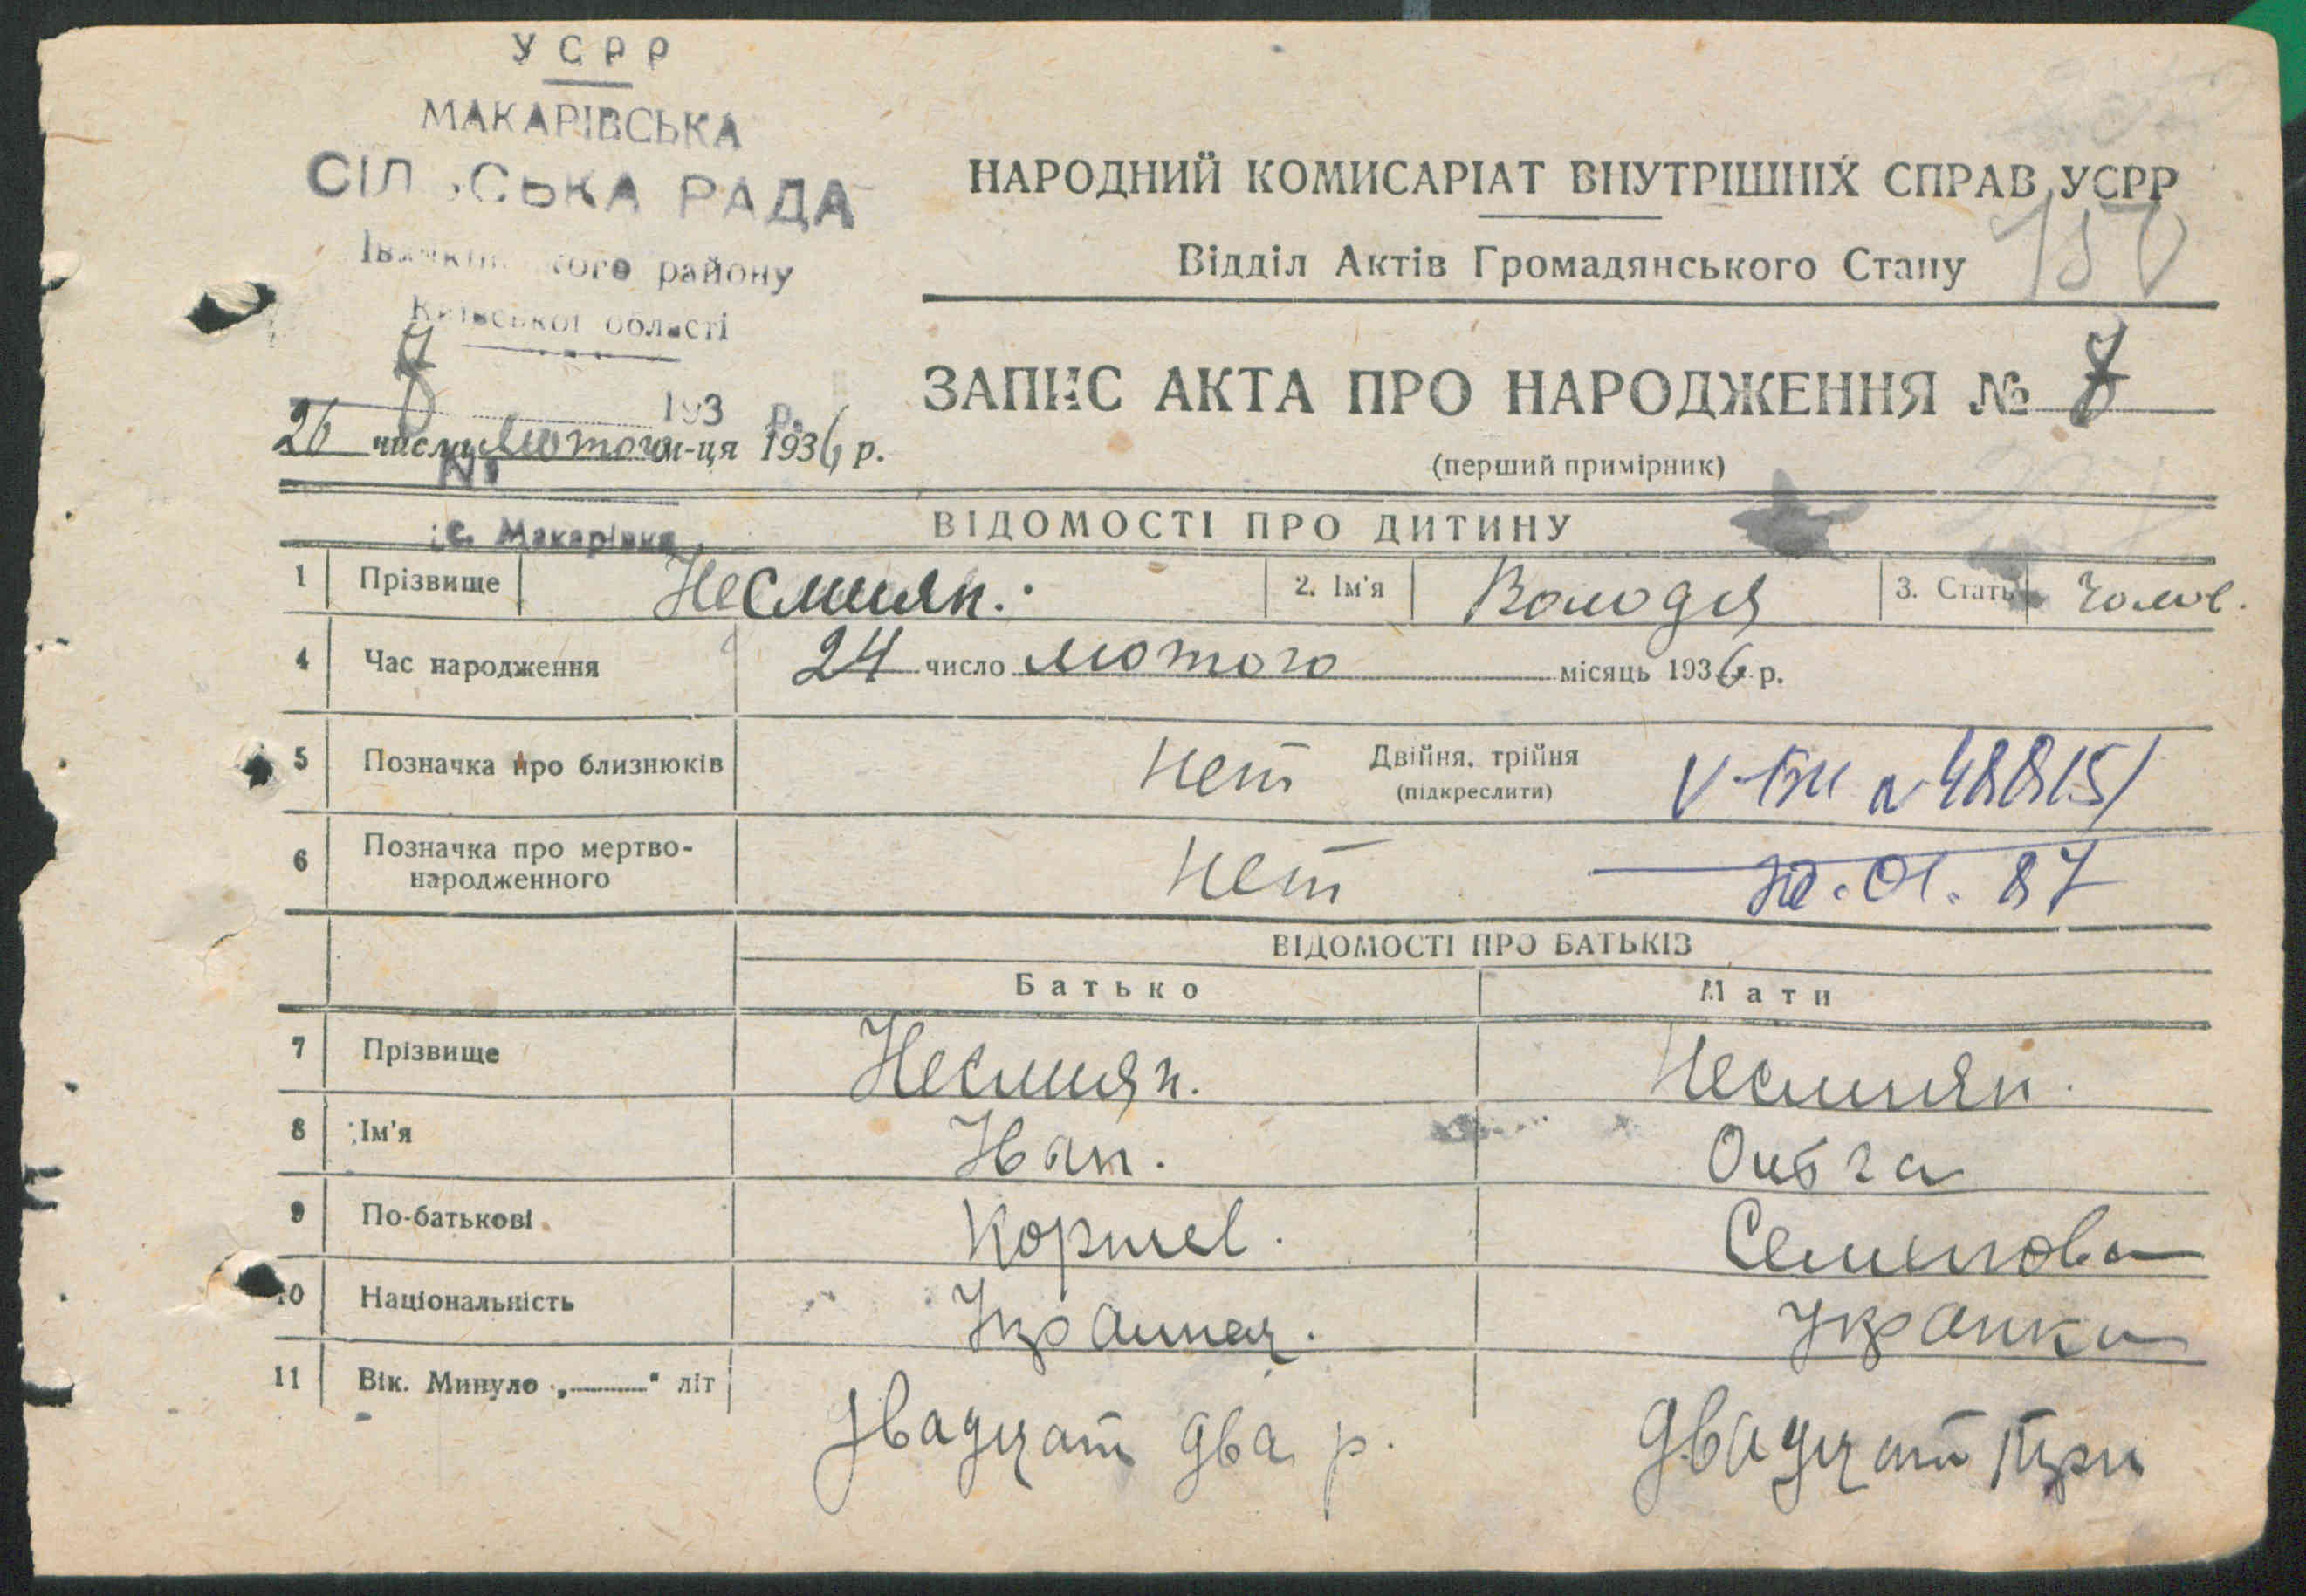 УСРР
МАКАРІВСЬКА
СІЛЬСЬКА РАДА
Іванківського району
Київської області
193 р.
26 числа Лютого м-ця 1936 р.
№
с. Макарівка
НАРОДНИЙ КОМИСАРІАТ ВНУТРІШНІХ СПРАВ УСРР
Відділ Актів Громадянського Стану
150
ЗАПИС АКТА ПРО НАРОДЖЕННЯ № 8
(перший примірник)
ВІДОМОСТІ ПРО ДИТИНУ
1 Прізвище Несмиян. 2. Ім'я Володя 3. Стать Чолов.
4 Час народження 24 число лютого місяць 1936 р.
5 Позначка про близнюків нет Двійня, трійня
(підкреслити)
V-БК № 488151
6 Позначка про мертво-
народженного нет
30.01.87
ВІДОМОСТІ ПРО БАТЬКІВ
Батько Мати
7 Прізвище Несмиян. Несмиян.
8 Ім'я Иван. Ольга
9 По-батькові Корнев. Семенова
10 Національність Украинец. Укранка
11 Вік. Минуло „ “ літ
двадцат два р. двадцат три